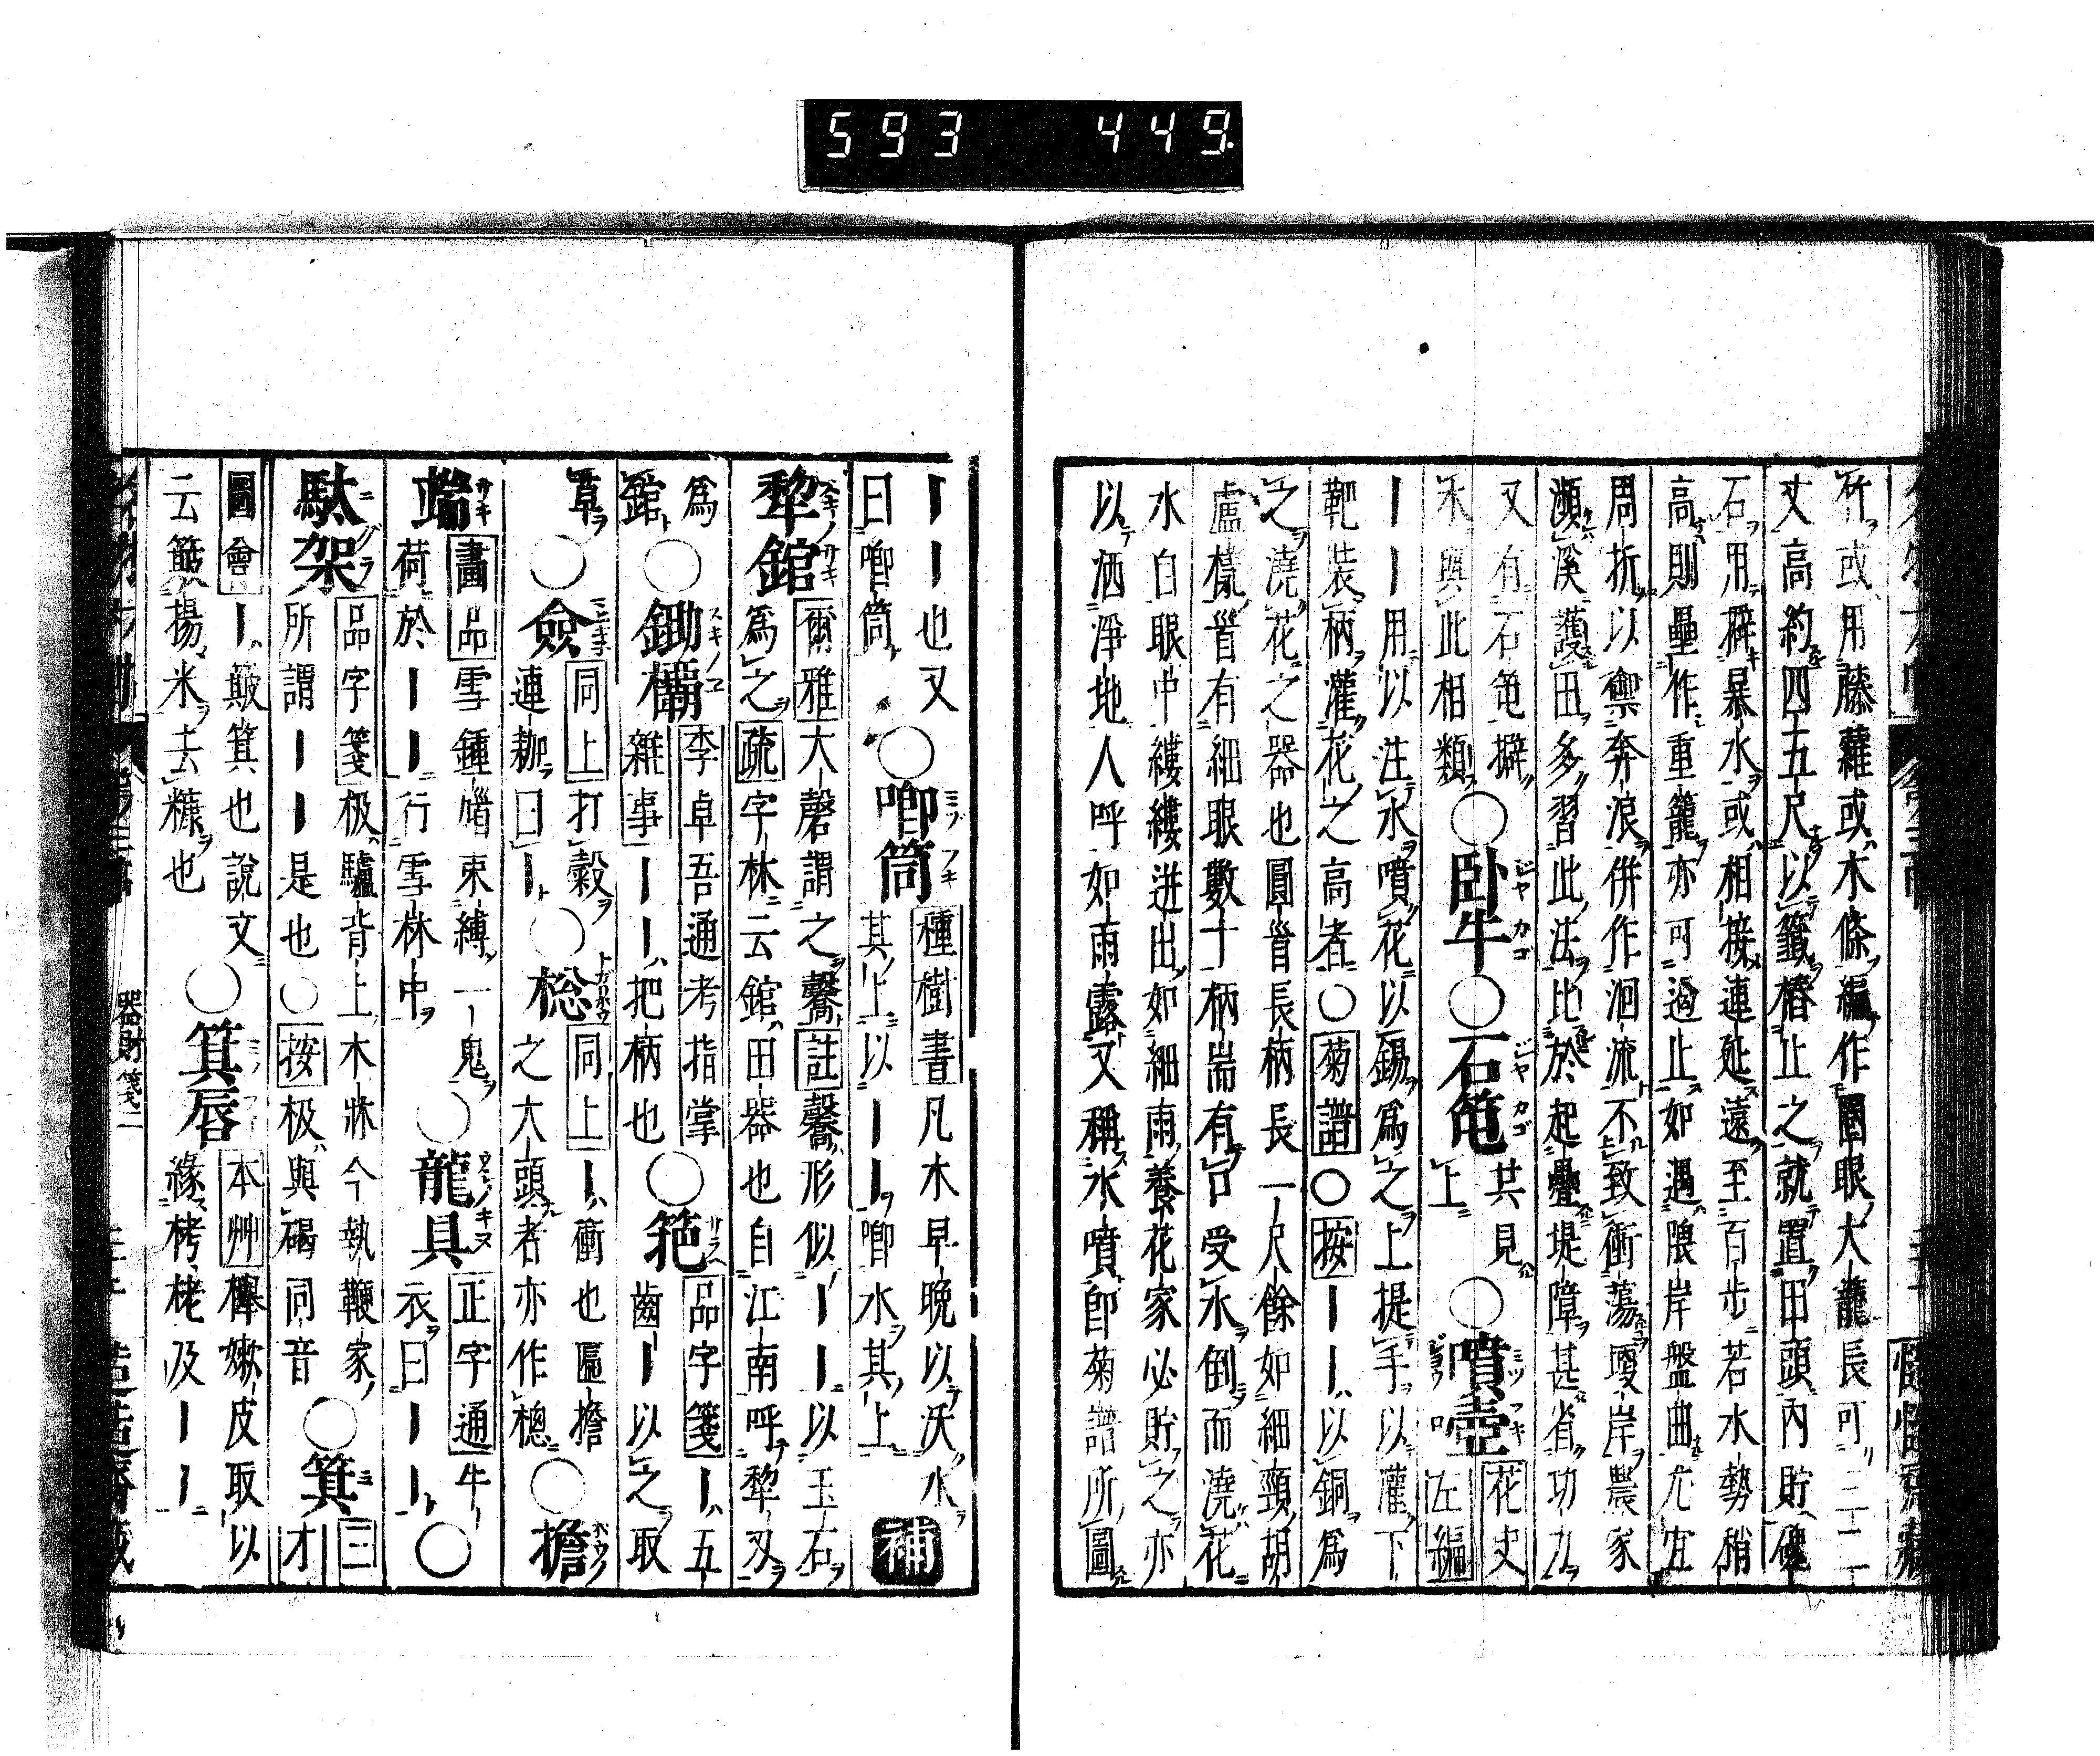 593 449.
竹或用藤蘿或木條編作圈眼大籠長可三二
丈高約四五尺以籤樁止之就置田頭內貯磈
石用擗暴水或相接連延遠至百步若水勢稍
高則壘作重籠亦可遏止如遇隈岸盤曲尤宜
周折以禦奔浪併作洄流不致衝蕩埂岸農家
瀕溪護田多習此法比於起疊堤障甚省功力
又有石笔擗
水與此相類
○卧牛○石笔
共見
上
○噴壺
花史
左編
ーー用以注水噴花以錫爲之上提手以灌下
靶裝柄灌花之高者○菊譜○按ーー以銅爲
之澆花之器也圓首長柄長一尺餘如細頸胡
盧槼首有細眼數十柄耑有口受水倒而澆花
水自眼中縷縷迸出如細雨養花家必貯之亦
以洒淨地人呼如雨露又稱水噴卽菊譜所圖
ーー也又
曰喞筒
○喞筒
種樹書凡木早晚以沃水
其上以ーー喞水其上
補
犂錧
爾雅大磬謂之毊註毊形似ーー以玉石
爲之疏字林云錧田器也自江南呼犂刃
爲
錧
○鋤欛
李卓吾通考指掌
雜事ーー把柄也
○䈈
品字箋ー五
齒ー以之取
草
○僉
同上打穀
連耞曰ー
○棇
同上ー衝也匾擔
之大頭者亦作檧
○擔
耑
畫品雪鍾馗束縛一鬼
荷於ーー行雪林中
○龍具
正字通牛
衣曰ーー
○
馱架
品字箋极驢背上木牀今執鞭家
所謂ーー是也○按极與碣同音
○箕
三才
圖會ー簸箕也說文
云簸揚米去糠也
○箕唇
本艸櫸嫩皮取以
緣栲栳及ーー
器財箋二